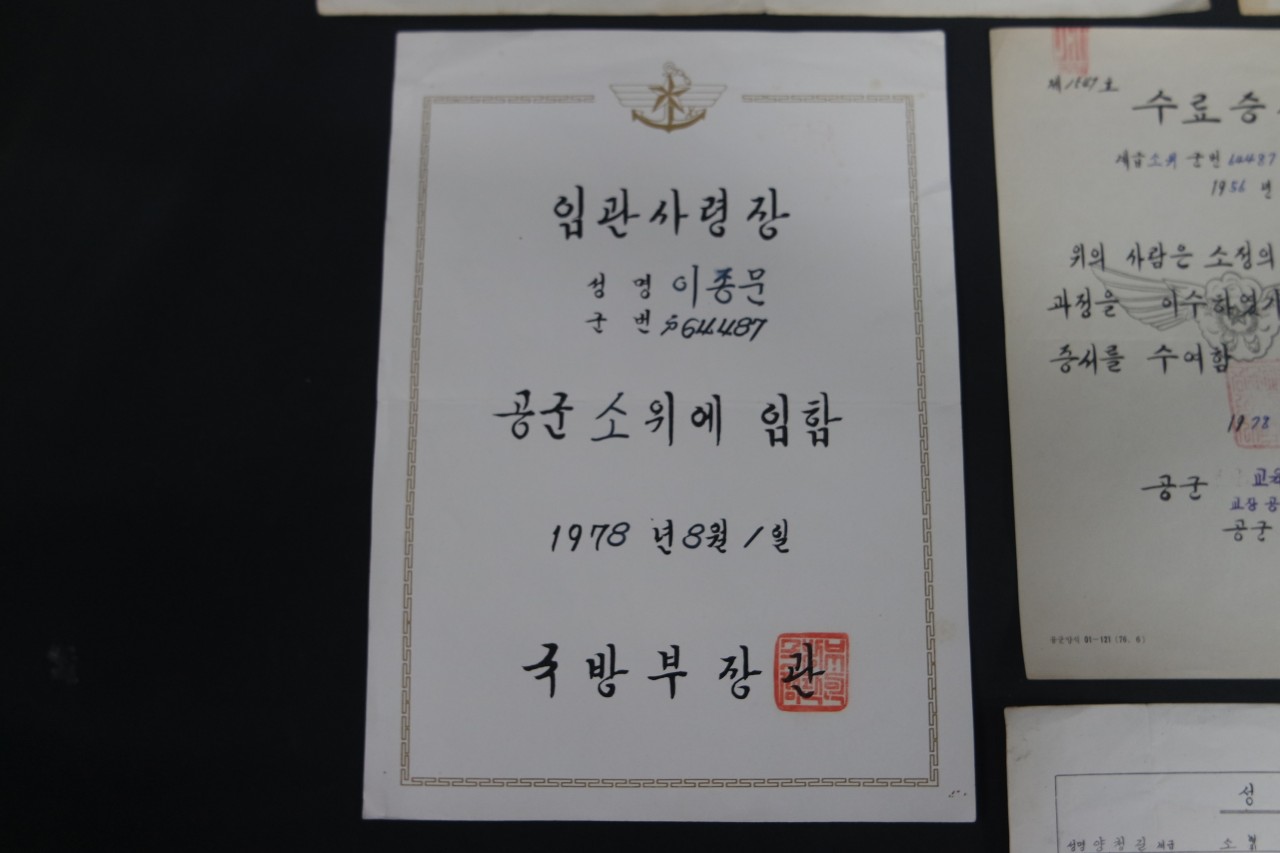 임관사령장
성 명 이종문
군 번 64487
공군 소위에 임함
1978 년 8월 1일
국방부장관
수료증
계급 소위 군번 64487
1956 년
위의 사람은 소정의
과정을 이수하였
증서를 수여함
1978
공군 교육
교장 공
공군
공군양식 01-121 (76. 6)
성
성명 양창길 계급 소령